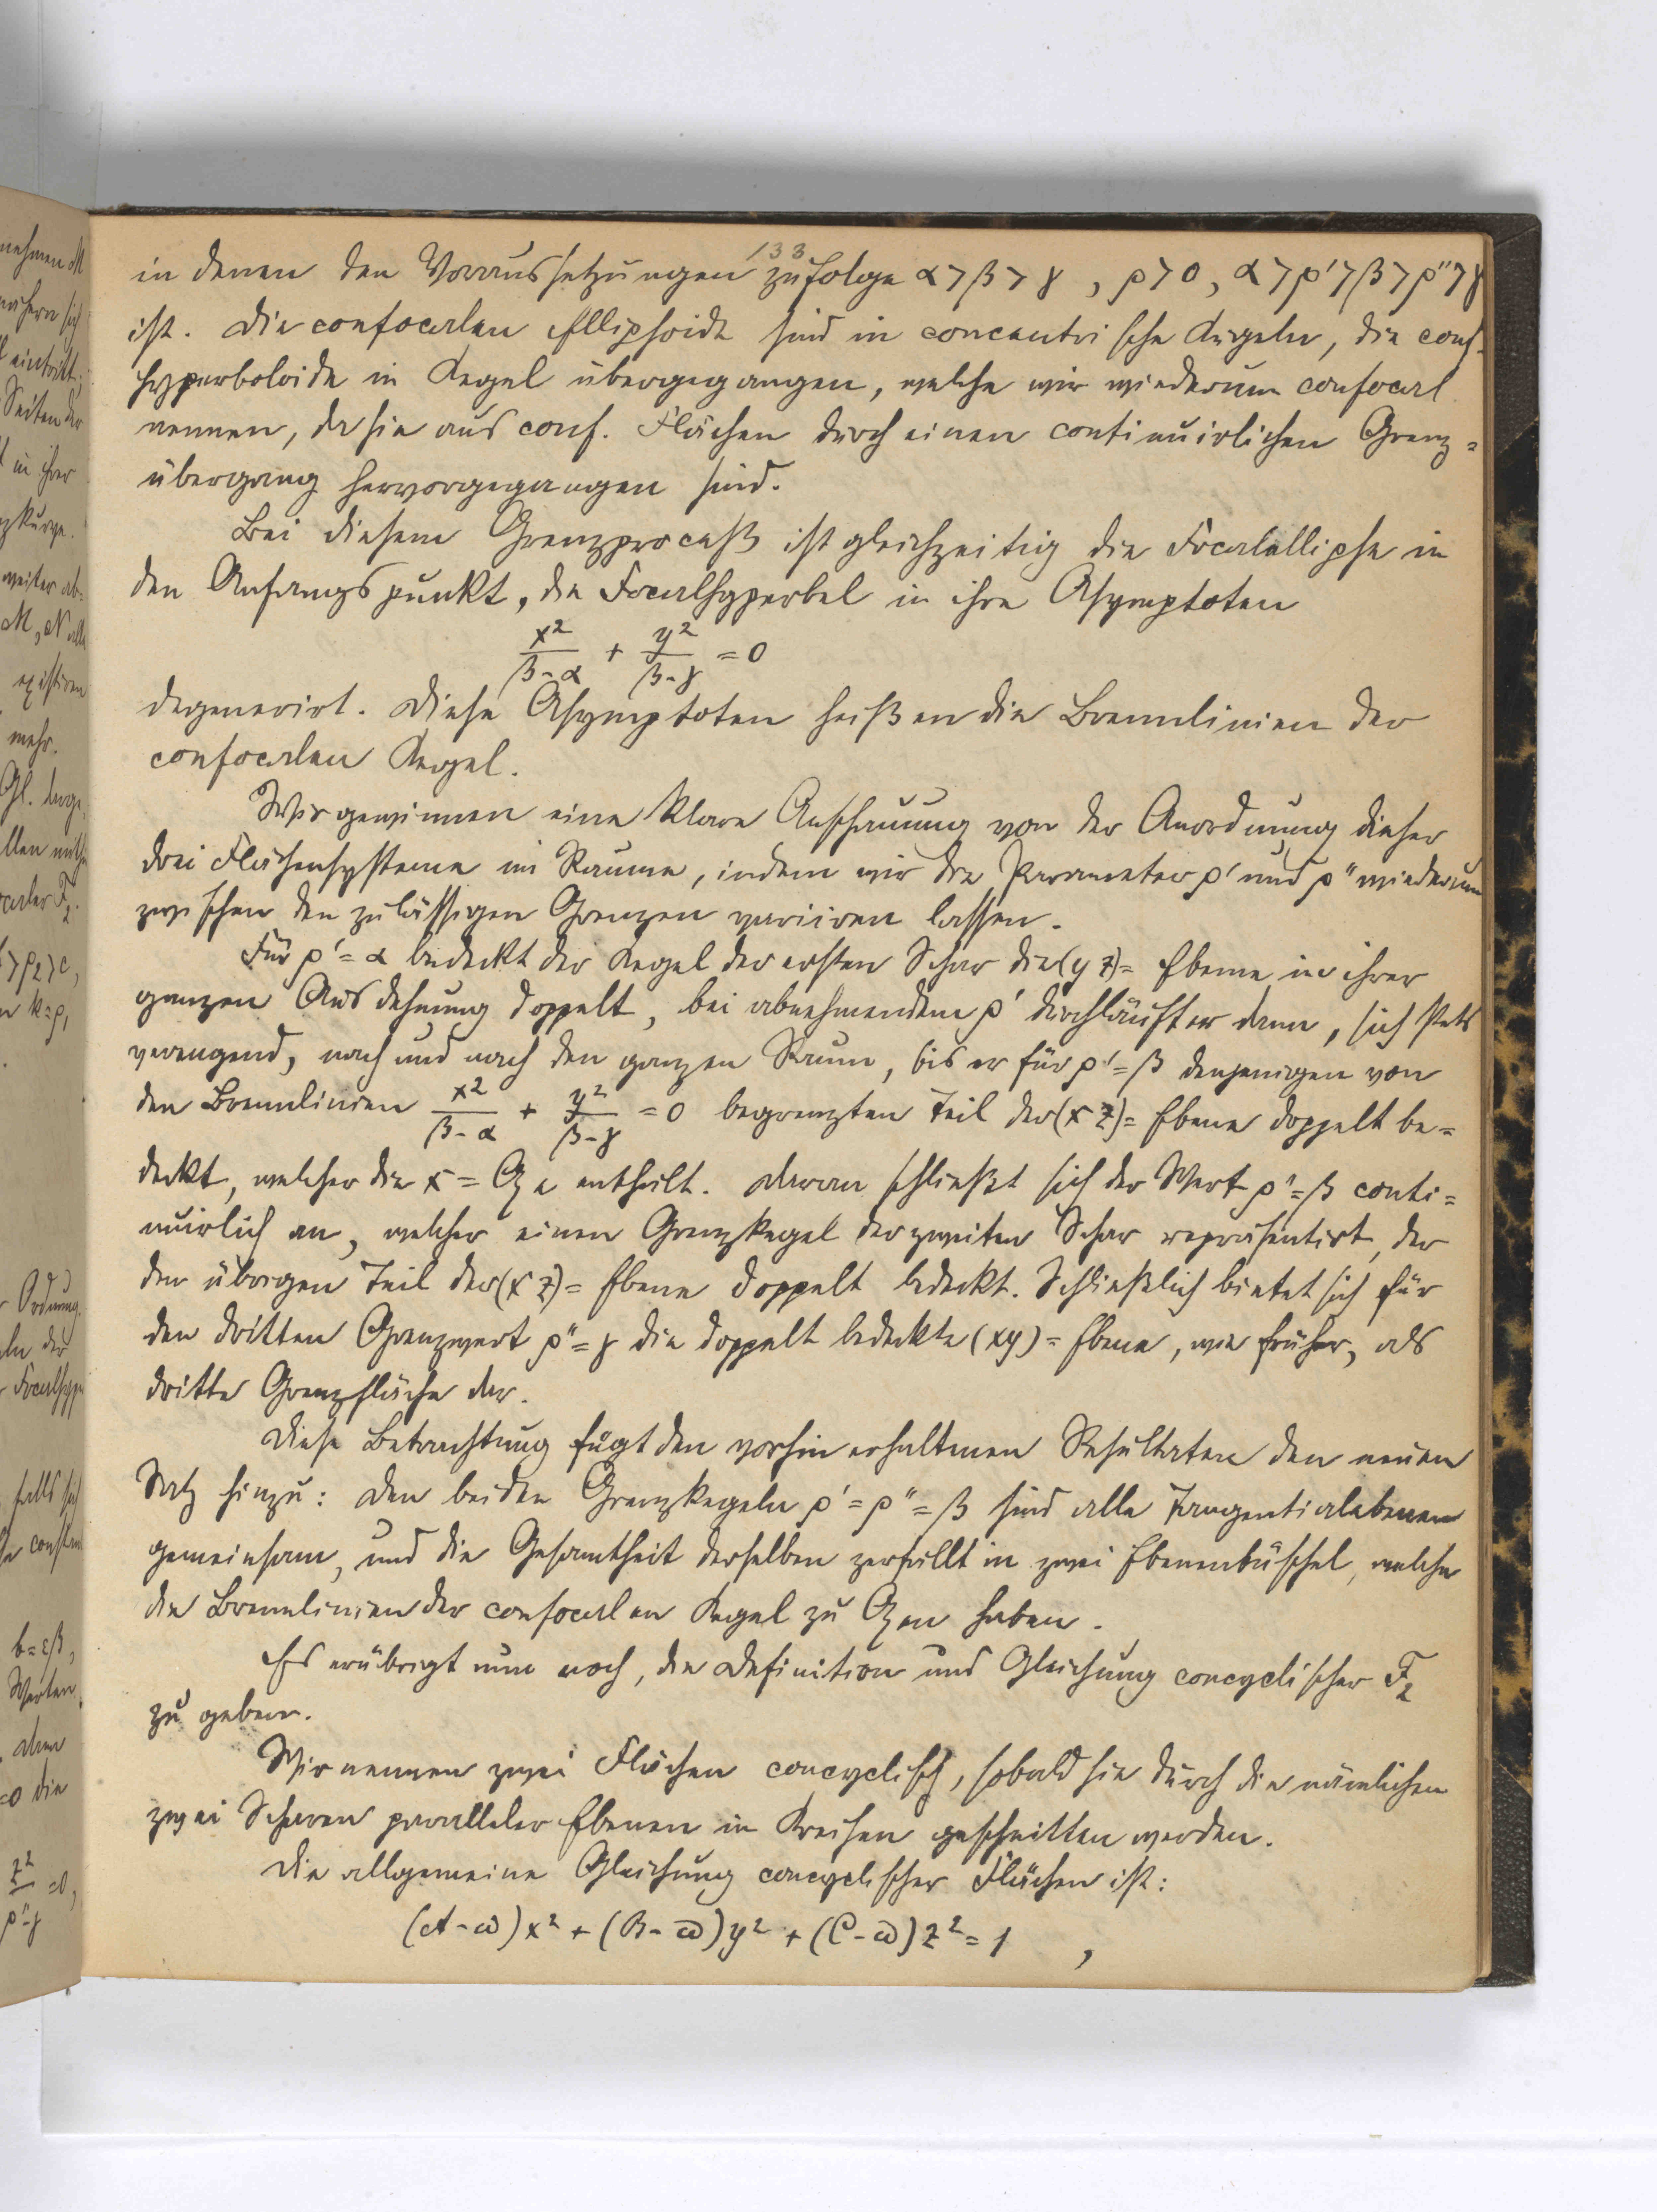 133
in denen den Voraussetzungen zufolge α > β > γ , ρ > 0, α > ρ' > β > ρ'' > γ
ist. Die confocalen Ellipsoide sind in concentrische Kugeln, die conf.
Hyperboloide in Kegel übergegangen, welche wir wiederum confocal
nennen, da sie aus conf. Flächen durch einen continuirlichen Grenz=
übergang hervorgegangen sind.
Bei diesem Grenzproceß ist gleichzeitig die Focalellipse in
den Anfangspunkt, die Focalhyperbel in ihre Asymptoten
x²/(β-α) + y²/(β-γ) = 0
degenerirt. Diese Asymptoten heißen die Brennlinien der
confocalen Kegel.
Wir gewinnen eine klare Anschauung von der Anordnung dieser
drei Flächensysteme im Raume, indem wir die Parameter ρ' und ρ'' wiederum
zwischen den zulässigen Grenzen variiren lassen.
Für ρ' = α bedeckt der Kegel der ersten Schar die (yz)= Ebene in ihrer
ganzen Ausdehnung doppelt, bei abnehmendem ρ' durchläuft er dann, sich stets
verengend, nach und nach den ganzen Raum, bis er für ρ' = β denjenigen von
den Brennlinien x²/(β-α) + y²/(β-γ) = 0 begrenzten Teil der (xz)= Ebene doppelt be=
deckt, welcher die x= Axe enthält. Daran schließt sich der Wert ρ' = β conti=
nuirlich an, welcher einen Grenzkegel der zweiten Schar repräsentirt, der
den übrigen Teil der (xz)= Ebene doppelt bedeckt. Schließlich bietet sich für
den dritten Grenzwert ρ'' = γ die doppelt bedeckte (xy)= Ebene, wie früher, als
dritte Grenzfläche dar.
Diese Betrachtung fügt den vorhin erhaltenen Resultaten den neuen
Satz hinzu: Den beiden Grenzkegeln ρ' = ρ'' = β sind alle Tangentialebenen
gemeinsam, und die Gesamtheit derselben zerfällt in zwei Ebenenbüschel, welche
die Brennlinien der confocalen Kegel zu Axen haben.
Es erübrigt nun noch, die Definition und Gleichung concyclischer F₂
zu geben.
Wir nennen zwei Flächen concyclisch, sobald sie durch die nämlichen
zwei Scharen paralleler Ebenen in Kreisen geschnitten werden.
Die allgemeine Gleichung concyclischer Flächen ist:
(A-ω)x² + (B-ω)y² + (C-ω)z² = 1 ,